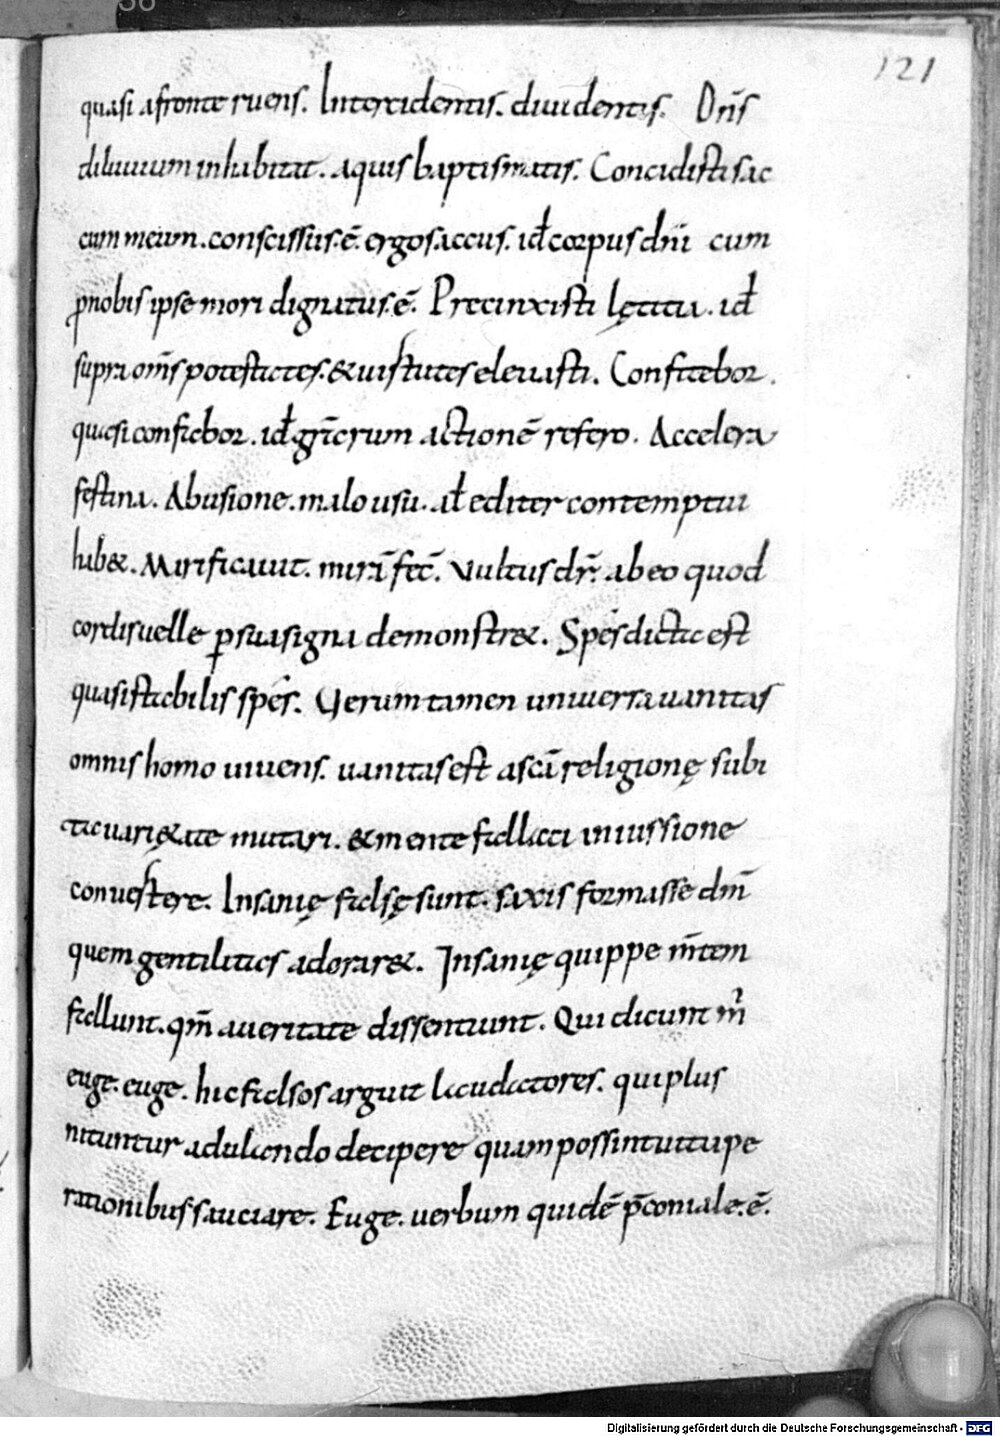 121
quasi a fronte ruens. Intercidentis. diuidentis. Dn̄s
diluuium inhabitat. aquis baptismatis. Concidisti sac
cum meum. conscissus.ē. ergo saccus. id̄ corpus dn̄i cum
p̄ nobis ipse mori dignatus.ē. Precinxisti lętitia. id̄
supra om̄s potestates. & uirtutes eleuasti. Confitebor.
quasi confiebor. id̄ gr̄arum actionē refero. Accelera
festina. Abusione. malo usu. al̄ editer contemptui
hab&. Mirificauit. mirā fec̄. Vultus dr̄. ab eo quod
cordis uelle ꝑ sua signa demonstr&. Spes dicta est
quasi stabilis spes. Uerum tamen uniuersa uanitas
omnis homo uiuens. uanitas est a sc̄a religionę subi
ta uarię&ate mutari. & mente fallaci in iussione
conuertere. Insanię falsę sunt. saxis formasse dm̄
quem gentilitas adorar&. Insanię quippe m̄tem
fallunt. qm̄ a ueritate dissentiunt. Qui dicunt m̄
euge. euge. hic falsos arguit laudatores. qui plus
nituntur adulando decipere quam possint uitupe
rationibus sauciare. Euge. uerbum quidē p̄coniale.ē.
Digitalisierung gefördert durch die Deutsche Forschungsgemeinschaft - DFG